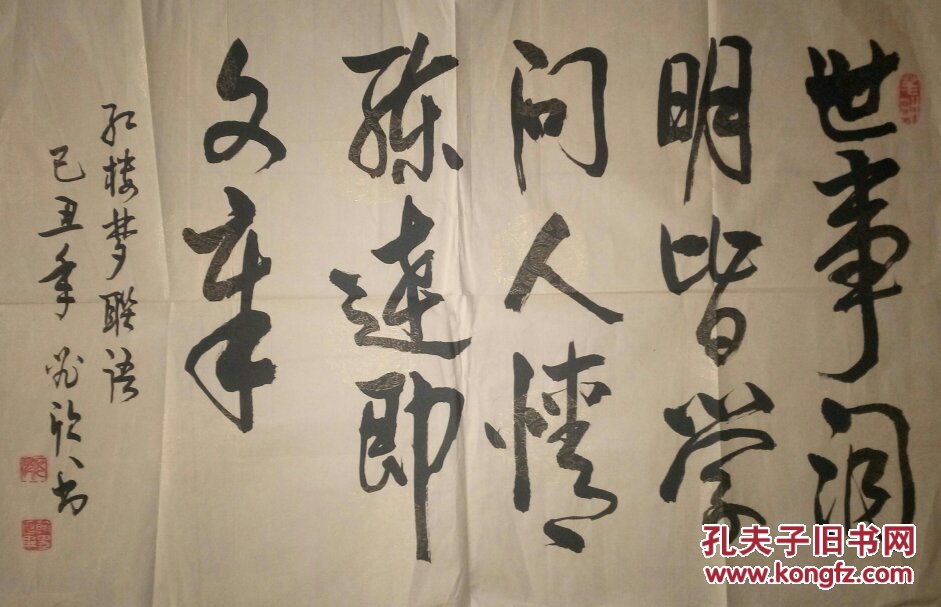 世事洞
明皆学
问人情
练达即
文章
红楼梦联语
己丑年 欣书
孔夫子旧书网
www.kongfz.com